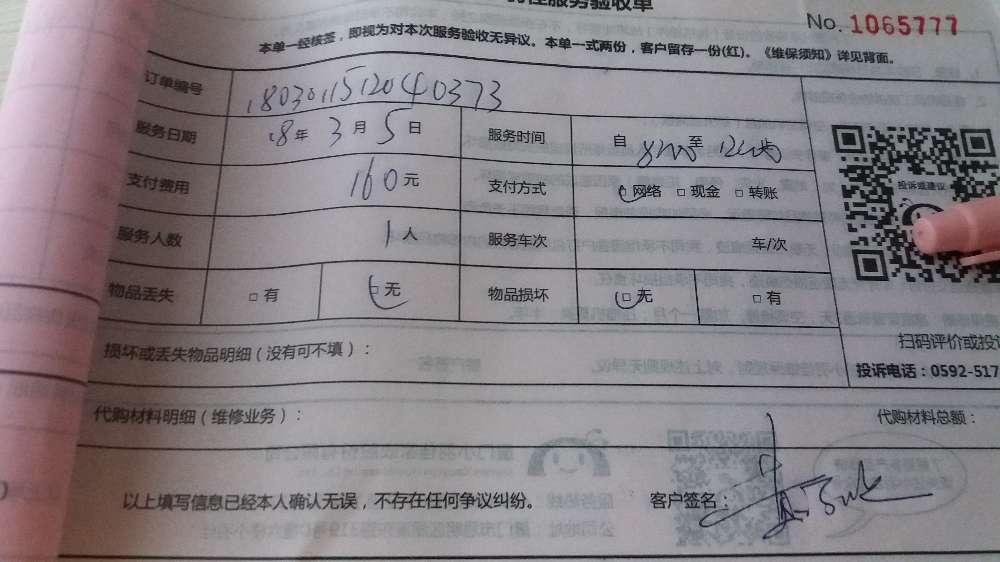 性服务验收单
No. 1065777
本单一经核签，即视为对本次服务验收无异议。本单一式两份，客户留存一份(红)。《维保须知》详见背面。
订单编号 180301151204 0373
服务日期 18年 3月 5日 服务时间 自 8:00 至 12:00
支付费用 160元 支付方式 □网络 □现金 □转账
服务人数 1人 服务车次 车/次
物品丢失 □有 □无 物品损坏 □无 □有
投诉或建议
损坏或丢失物品明细（没有可不填）：
扫码评价或投
投诉电话：0592-517
代购材料明细（维修业务）：
代购材料总额：
以上填写信息已经本人确认无误，不存在任何争议纠纷。
客户签名：